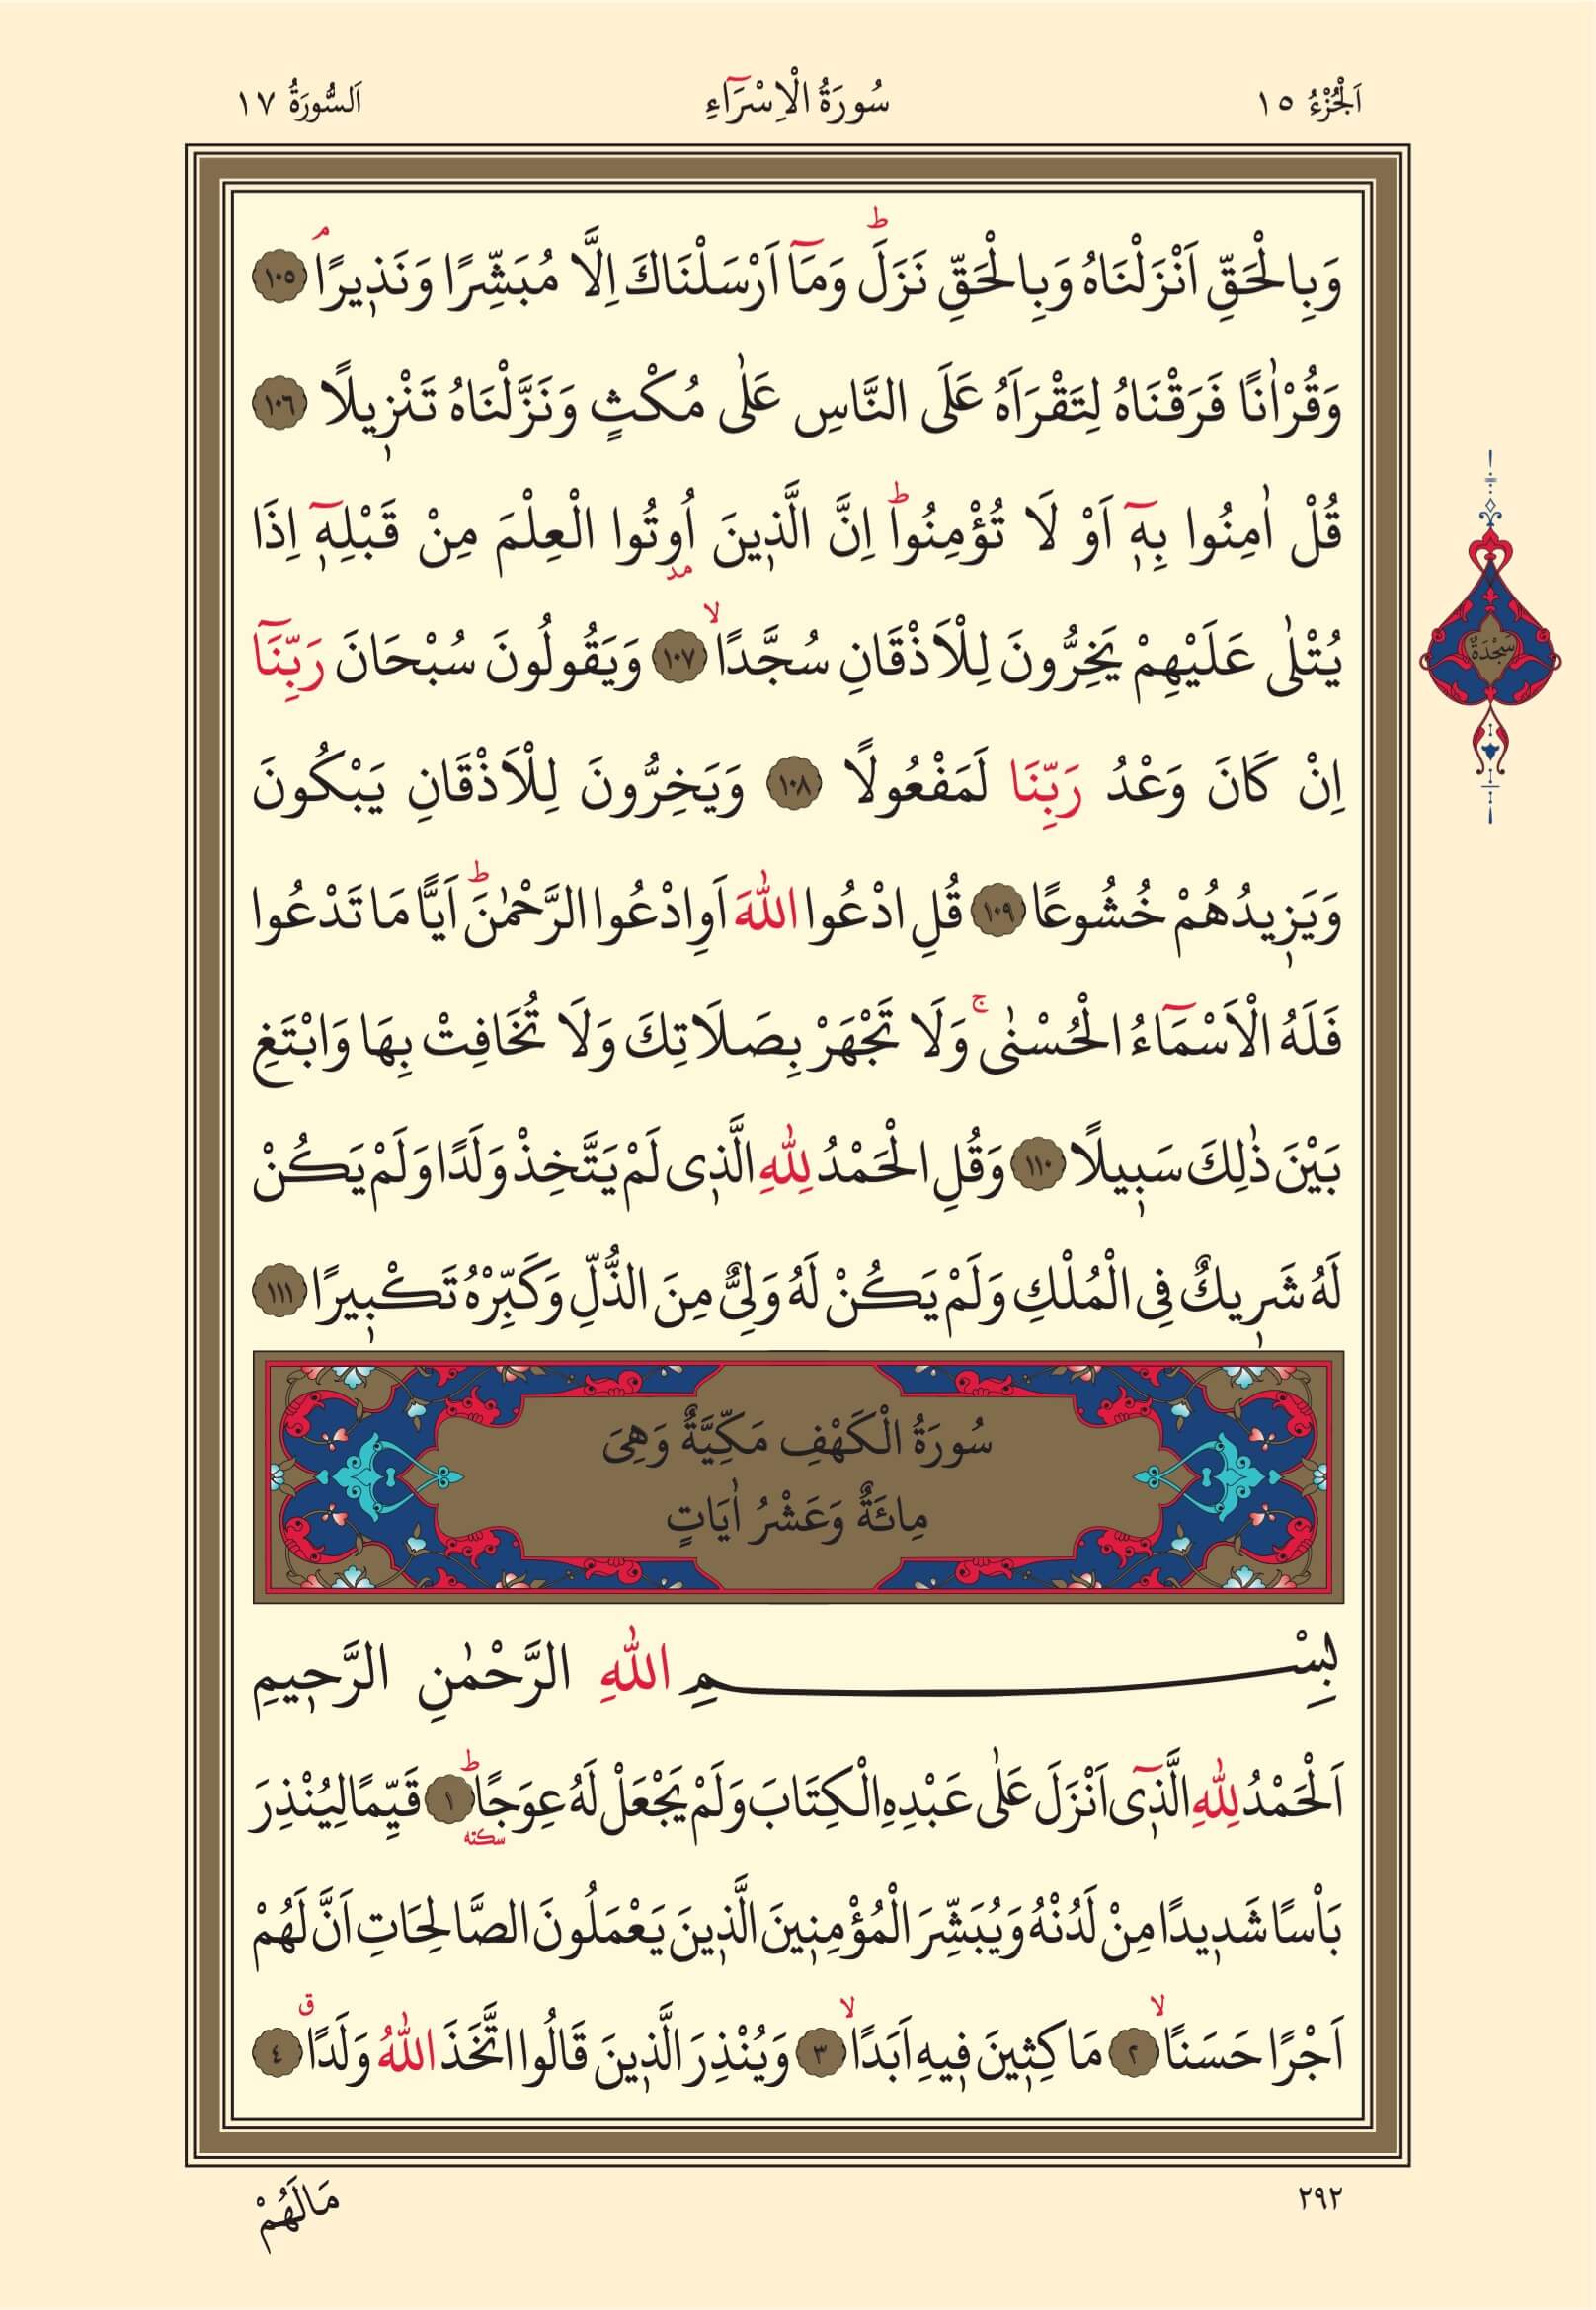 اَلْجُزْءُ ١٥
سُورَةُ الْاِسْرَٓاءِ
اَلسُّورَةُ ١٧
وَبِالْحَقِّ اَنْزَلْنَاهُ وَبِالْحَقِّ نَزَلَۜ وَمَٓا اَرْسَلْنَاكَ اِلَّا مُبَشِّرًا وَنَذٖيرًاۢ ١٠٥
وَقُرْاٰنًا فَرَقْنَاهُ لِتَقْرَاَهُ عَلَى النَّاسِ عَلٰى مُكْثٍ وَنَزَّلْنَاهُ تَنْزٖيلًا ١٠٦
قُلْ اٰمِنُوا بِهٖٓ اَوْ لَا تُؤْمِنُواۜ اِنَّ الَّذٖينَ اُو۫تُوا الْعِلْمَ مِنْ قَبْلِهٖٓ اِذَا
يُتْلٰى عَلَيْهِمْ يَخِرُّونَ لِلْاَذْقَانِ سُجَّدًاۙ ١٠٧ وَيَقُولُونَ سُبْحَانَ رَبِّنَٓا
سَجْدَةٌ
اِنْ كَانَ وَعْدُ رَبِّنَا لَمَفْعُولًا ١٠٨ وَيَخِرُّونَ لِلْاَذْقَانِ يَبْكُونَ
وَيَزٖيدُهُمْ خُشُوعًا ١٠٩ قُلِ ادْعُوا اللّٰهَ اَوِ ادْعُوا الرَّحْمٰنَۜ اَيًّا مَا تَدْعُوا
فَلَهُ الْاَسْمَٓاءُ الْحُسْنٰىۚ وَلَا تَجْهَرْ بِصَلَاتِكَ وَلَا تُخَافِتْ بِهَا وَابْتَغِ
بَيْنَ ذٰلِكَ سَبٖيلًا ١١٠ وَقُلِ الْحَمْدُ لِلّٰهِ الَّذٖى لَمْ يَتَّخِذْ وَلَدًا وَلَمْ يَكُنْ
لَهُ شَرٖيكٌ فِى الْمُلْكِ وَلَمْ يَكُنْ لَهُ وَلِىٌّ مِنَ الذُّلِّ وَكَبِّرْهُ تَكْبٖيرًا ١١١
سُورَةُ الْكَهْفِ مَكِّيَّةٌ وَهِىَ
مِائَةٌ وَعَشْرُ اٰيَاتٍ
بِسْمِ اللّٰهِ الرَّحْمٰنِ الرَّحٖيمِ
اَلْحَمْدُ لِلّٰهِ الَّذٖٓى اَنْزَلَ عَلٰى عَبْدِهِ الْكِتَابَ وَلَمْ يَجْعَلْ لَهُ عِوَجًاۜ سكته ١ قَيِّمًا لِيُنْذِرَ
بَاْسًا شَدٖيدًا مِنْ لَدُنْهُ وَيُبَشِّرَ الْمُؤْمِنٖينَ الَّذٖينَ يَعْمَلُونَ الصَّالِحَاتِ اَنَّ لَهُمْ
اَجْرًا حَسَنًاۙ ٢ مَاكِثٖينَ فٖيهِ اَبَدًاۙ ٣ وَيُنْذِرَ الَّذٖينَ قَالُوا اتَّخَذَ اللّٰهُ وَلَدًاۗ ٤
٢٩٢
مَالَهُمْ